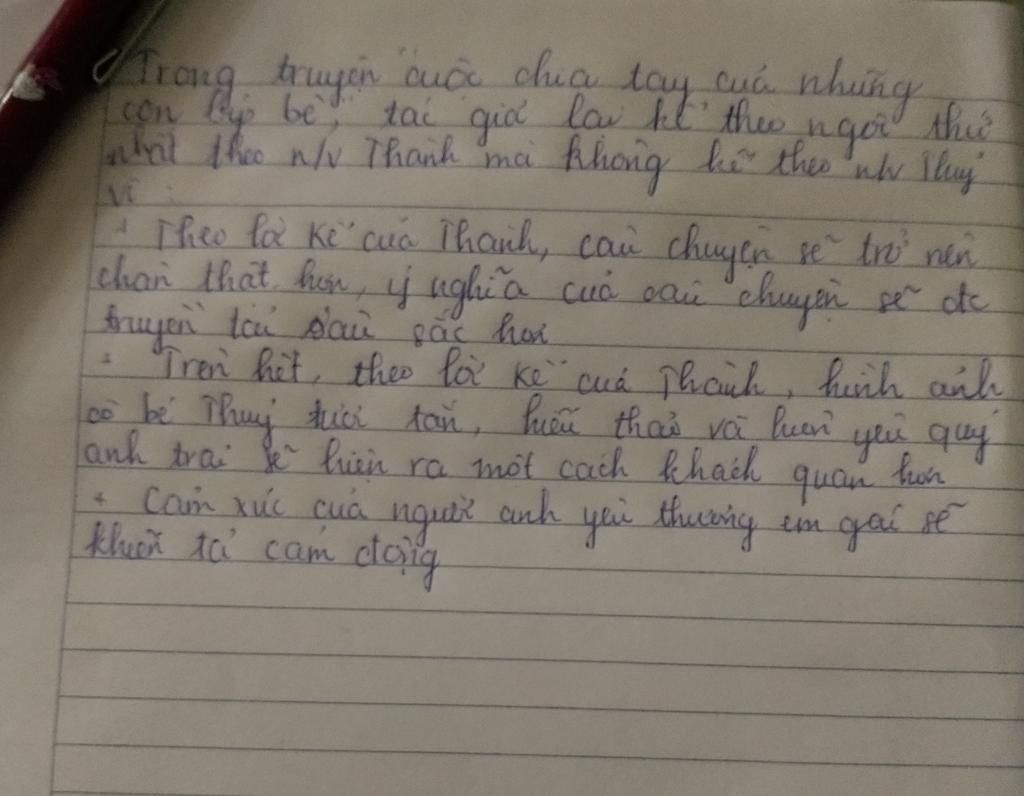 Trong truyện "cuộc chia tay của những
con búp bê", tác giả lại kể theo ngôi thứ
nhất theo n/v Thành mà không kể theo nh/v Thuỷ
vì :
+ Theo lời kể của Thành, câu chuyện sẽ trở nên
chân thật hơn, ý nghĩa của câu chuyện sẽ đc
truyền tải sâu sắc hơn
+ Trên hết, theo lời kể của Thành, hình ảnh
cô bé Thuỷ tươi tắn, hiếu thảo và luôn yêu quý
anh trai sẽ hiện ra một cách khách quan hơn
+ Cảm xúc của người anh yêu thương em gái sẽ
khiến ta cảm động